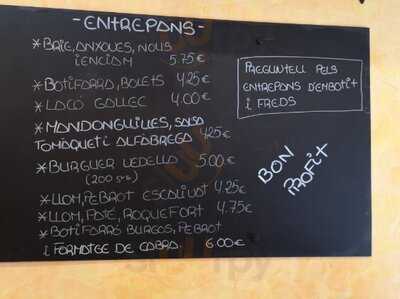 - ENTREPANS -
* BRIE, ANXOVES, NOUS
I ENCIAM 5.75€
* BOTIFARRA, BOLETS 4.25€
* LACÓ GALLEC 4.00€
* MANDONGUILLES, SALSA
TOMÀQUET I ALFÀBREGA 4.25€
* BURGUER VEDELLA 5.00€
(200 grs)
* LLOM, PEBROT ESCALIVAT 4.25€
* LLOM, PATÉ, ROQUEFORT 4.75€
* BOTIFARRÓ BURGOS, PEBROT
I FORMATGE DE CABRA. 6.00€
PREGUNTEU PELS
ENTREPANS D'EMBOTIT
I FREDS
BON
PROFIT